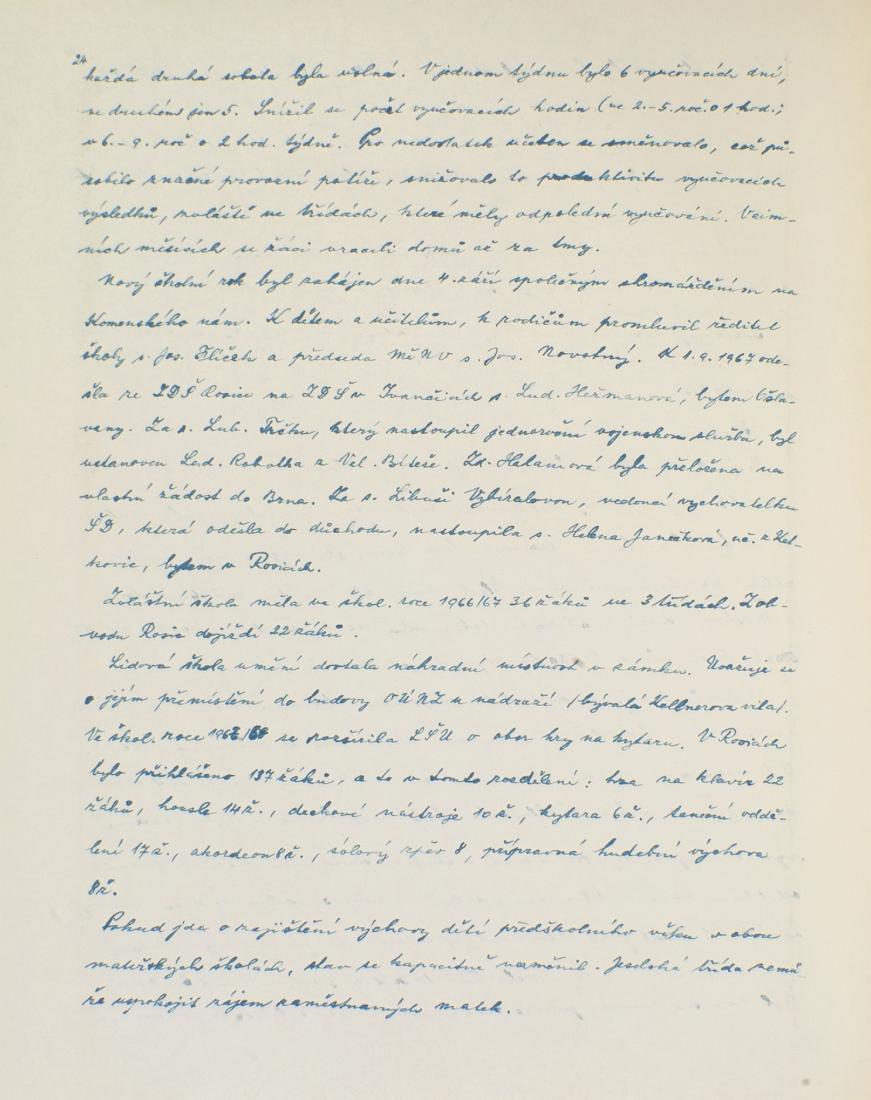 24
každá druhá sobota byla volná. V jednom týdnu bylo 6 vyučovacích dní,
ve druhém jen 5. Snížil se počet vyučovacích hodin (ve 2.-5. roč. o 1 hod.;
v 6.-9. roč o 2 hod. týdně. Pro nedostatek učeben se směnovalo, což pů-
sobilo značné provozní potíže, snižovalo to produktivitu vyučovacích
výsledků, zvláště ve třídách, které měly odpolední vyučování. V zim-
ních měsících se žáci vraceli domů až za tmy.
Nový školní rok byl zahájen dne 4. září společným shromážděním na
Komenského nám. K dětem a učitelům, k rodičům promluvil ředitel
školy s. Jos. Flíček a předseda MěNV s. Jos. Novotný. K 1.9.1967 ode-
šla ze ZDŠ Rosice na ZDŠ v Ivančicích s. Lud. Heřmanová, bytem Osla-
vany. Za s. Lub. Trčku, který nastoupil jednoroční vojenskou službu, byl
ustanoven Lad. Robotka z Vel. Bíteše. Zd. Halamová byla přeložena na
vlastní žádost do Brna. Za s. Libuši Vybíralovou, vedoucí vychovatelku
ŠD, která odešla do důchodu, nastoupila s. Helena Janečková, uč. z Zal-
kovic, bytem v Rosicích.
Zvláštní škola měla ve škol. roce 1966/67 36 žáků ve 3 třídách. Z ob-
vodu Rosic dojíždí 22 žáků.
Lidová škola umění dostala náhradní místnost v zámku. Uvažuje se
o jejím přemístění do budovy OÚNZ u nádraží (bývalá Kellnerova vila).
Ve škol. roce 1967/68 se rozšířila LŠU o obor hry na kytaru. V Rosicích
bylo přihlášeno 137 žáků, a to v tomto rozdělení: hra na klavír 22
žáků, housle 14 ž., dechové nástroje 10 ž., kytara 6 ž., taneční oddě-
lení 17 ž., akordeon 8 ž., sólový zpěv 8, přípravná hudební výchova
8 ž.
Pokud jde o zajištění výchovy dětí předškolního věku v obou
mateřských školách, stav se kapacitně nezměnil. Jeselská třída nemů-
že uspokojit zájem zaměstnaných matek.